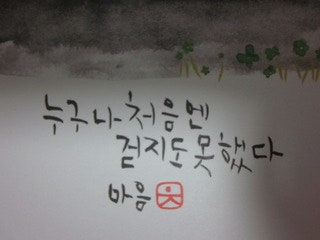 누구나 처음엔
걷지도 못했다
마음